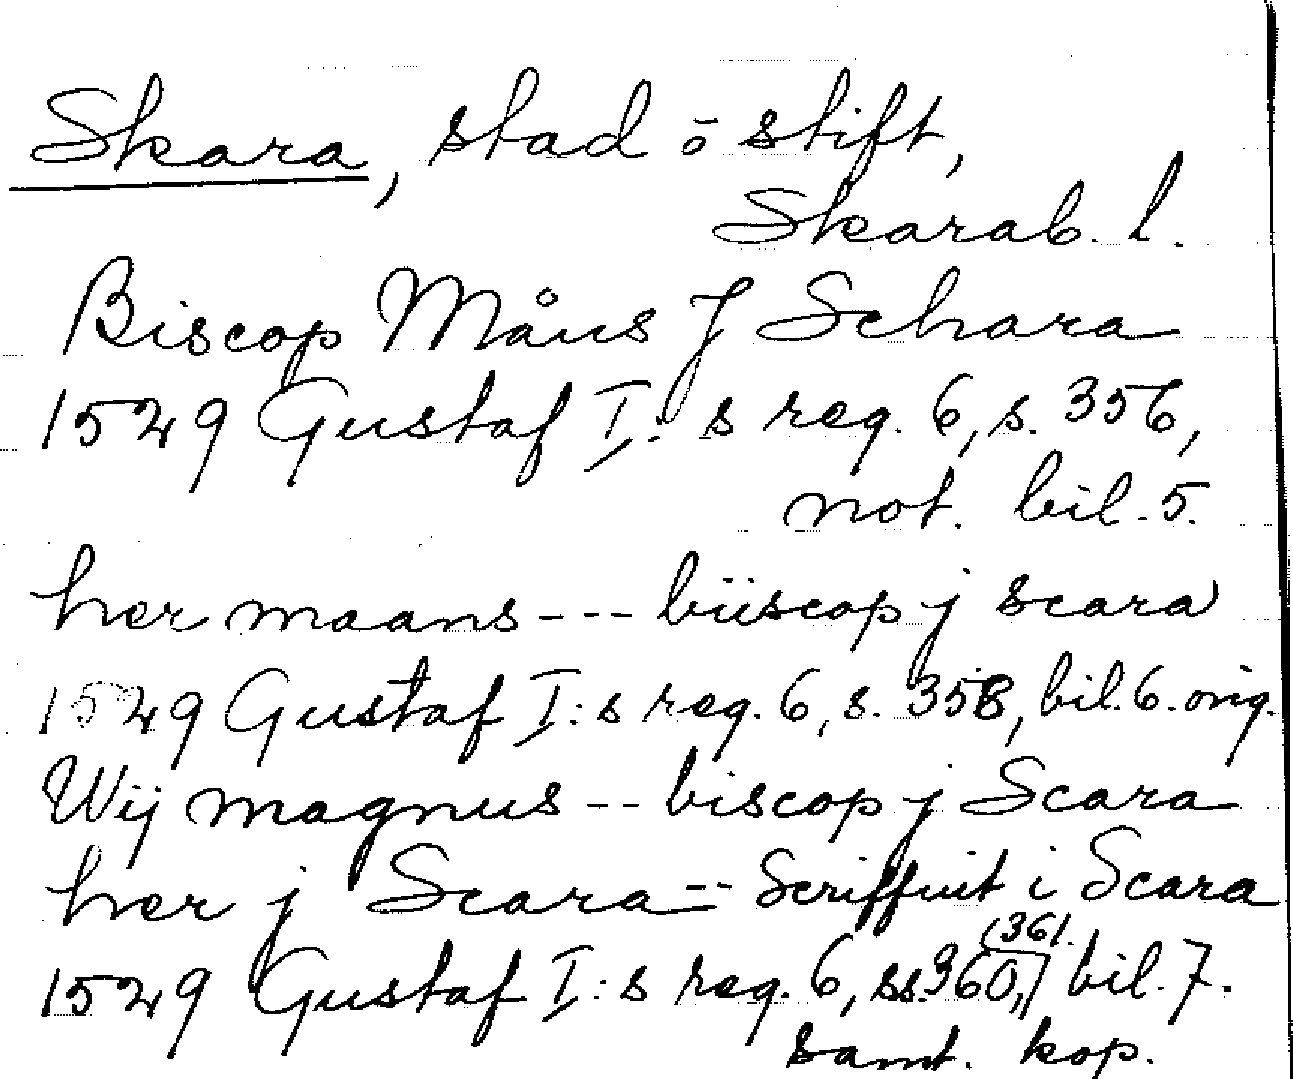 Skara, stad o stift,
Skarab. l.
Biscop Måns J Schara
1529 Gustaf I:s reg. 6, s. 356,
not. bil. 5.
her maans --- biiscop j scara
1529 Gustaf I:s reg. 6, s. 358, bil. 6. orig.
Wij magnus -- biscop j Scara
her j Scara -- Scriffuit i Scara
1529 Gustaf I:s reg. 6, ss. 360, (361. bil. 7.
samt. kop.